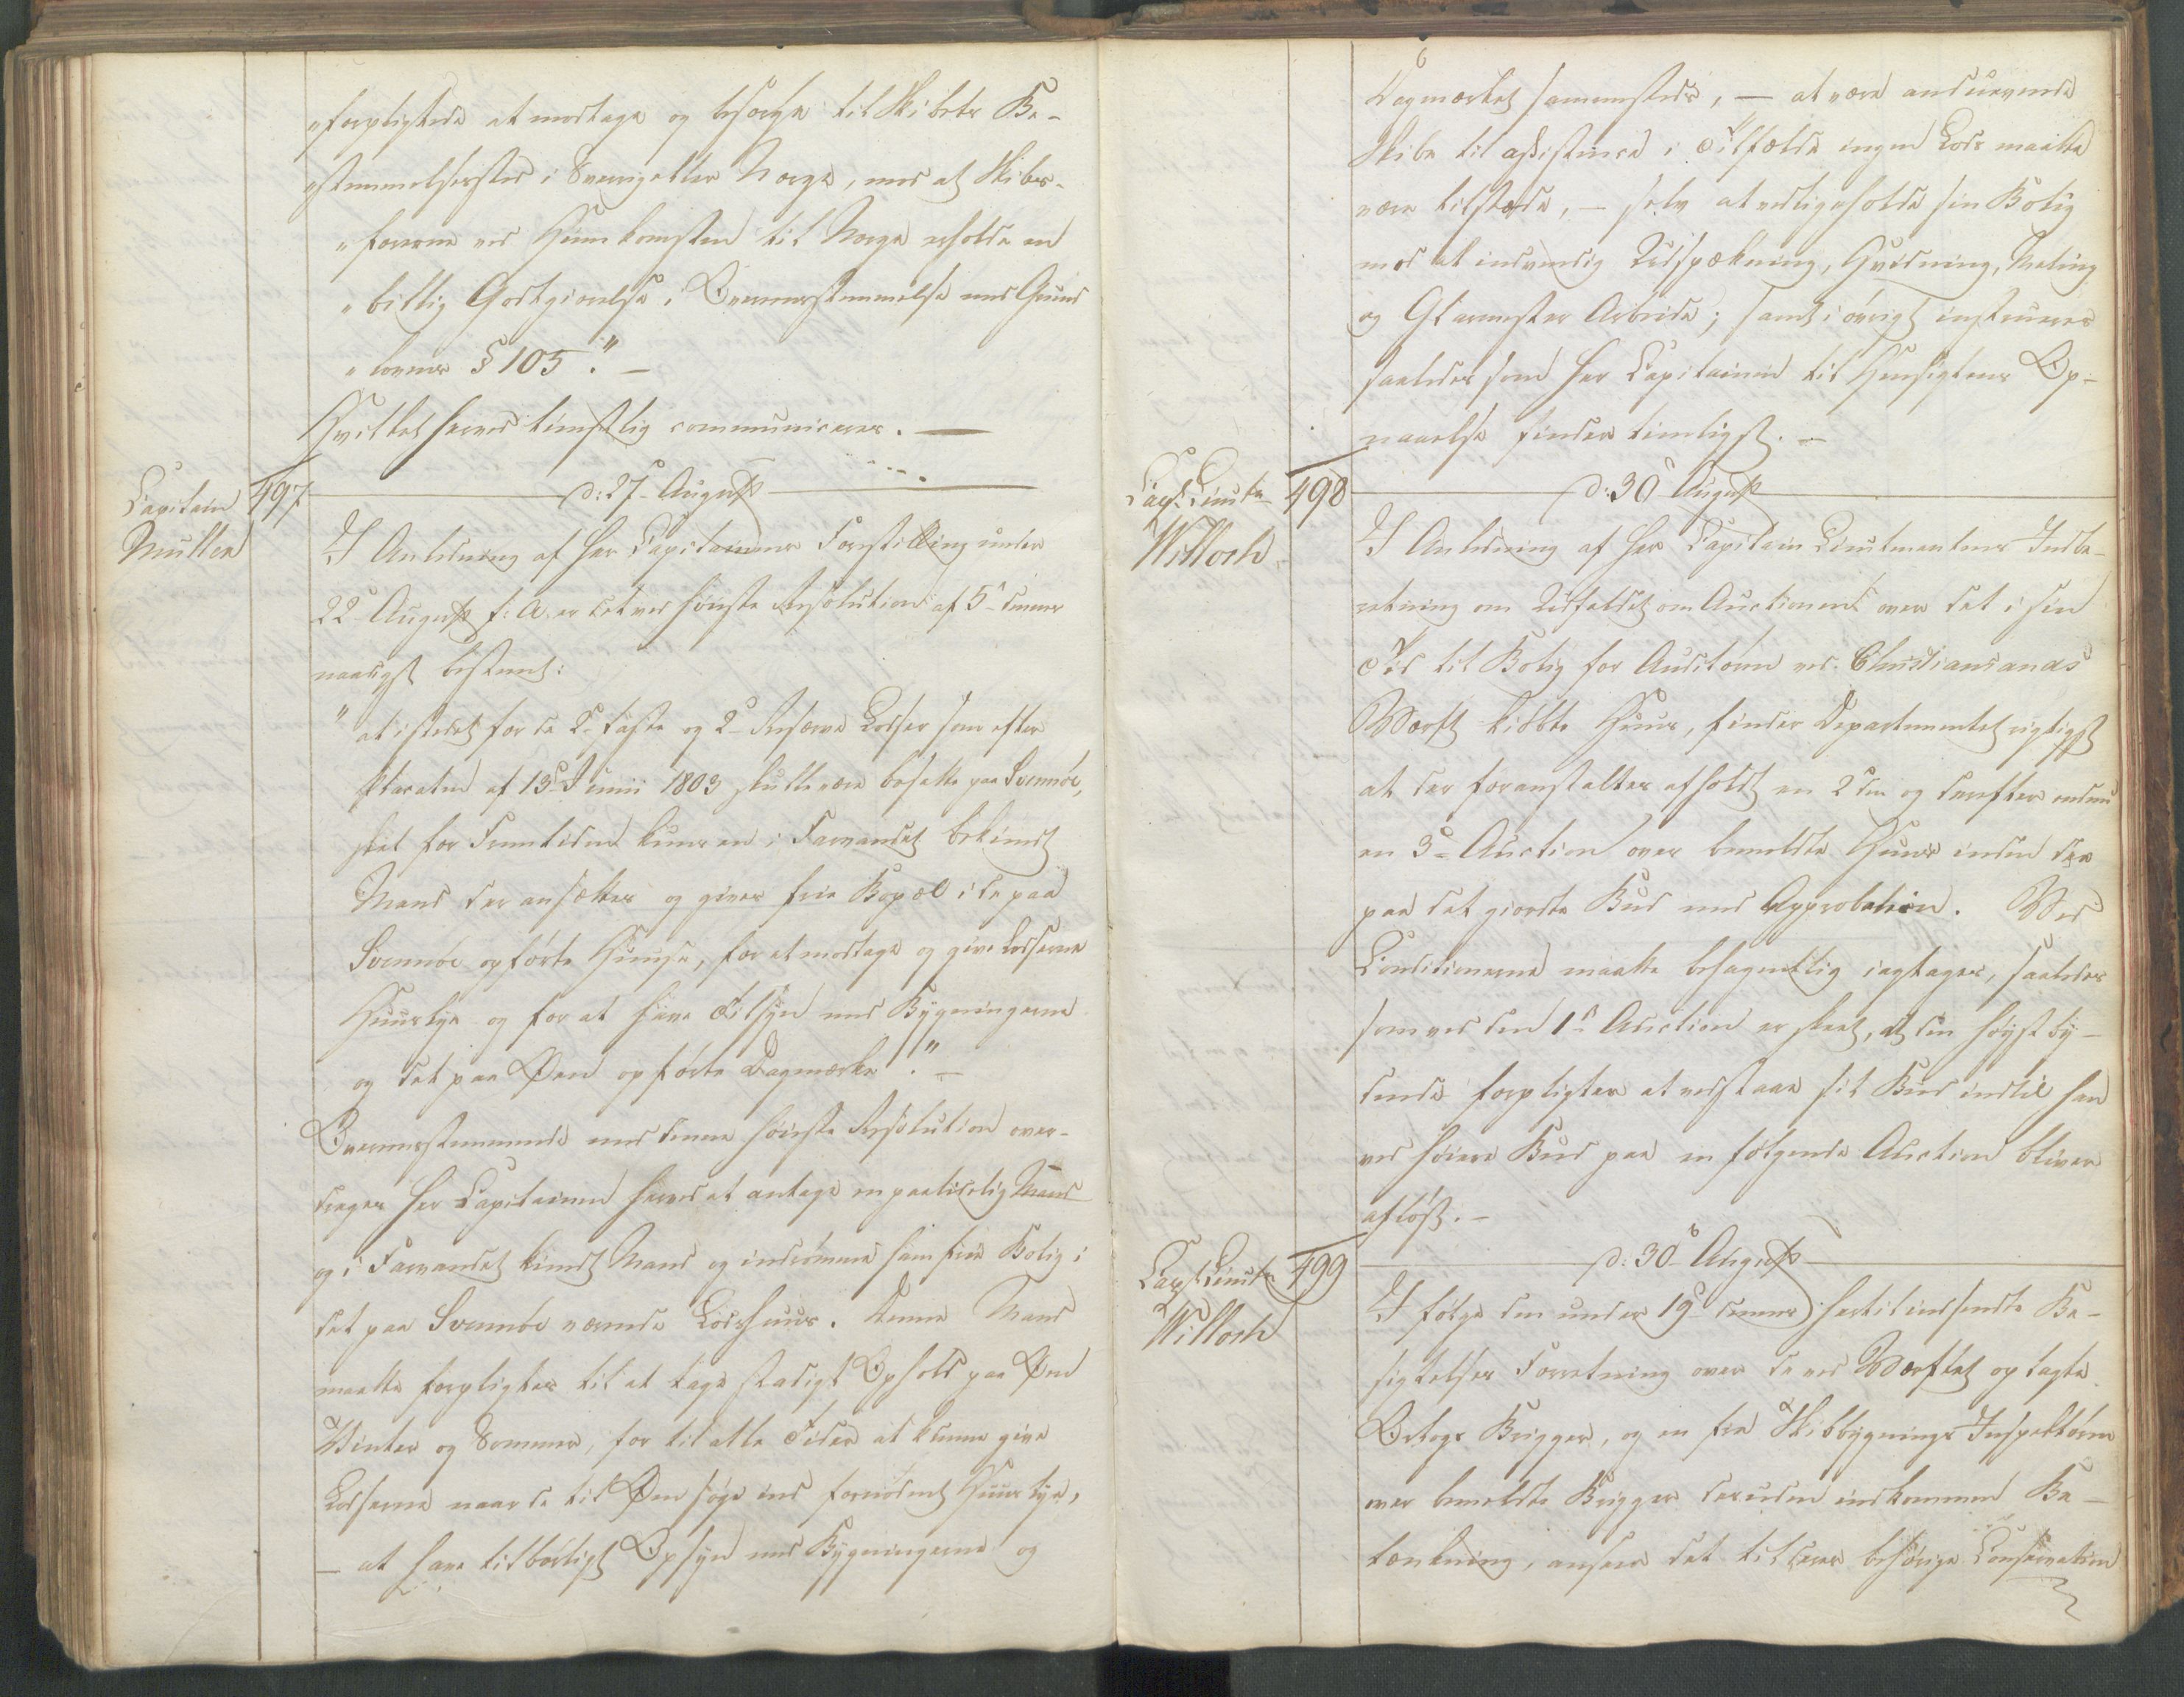 "forpligtede at modtage og besørge til Skibets Be-
"stemmelsessted i Sverrig eller Norge, mod at Skibs-
"førerne ved Hiemkomsten til Norge erholde en
"billig Godtgiørelse i Overeensstemmelse med Grund
"lovens § 105." —
Hvilket herved tienstlig communiceres. —
Capitain
Müller
497
d: 27 August
I Anledning af Hr Capitainens Forestilling under
22 August f: A. er det ved høieste Resolution af 5te dennes
naadigst bestemt:
" at istedet for de 2de faste og 2de Reserve Lodser som efter
Placaten af 13de Junii 1803 skulle være bosatte paa Svennöe,
skal for Fremtiden kuns en i Farvandet bekiendt
Mand der ansættes og gives frie Bopæl i de paa
Svennöe opførte Huuse, for at modtage og give Lodserne
Huuslye og for at have Tilsyn med Bygningerne
og det paa Øen opførte Dagmærke". —
Overeensstemmende med denne høieste Resolution over-
drages Hr Capitainen herved at antage en paalidelig Mand
og i Farvandet kiendt Mand og indrømme ham frie Bolig i
det paa Svennöe værende Lodshuus. Denne Mand
maatte forpligtes til at tage stadigt Ophold paa Øen
Vinter og Sommer, for til alle Tider at kunne give
Lodserne naar de til Øen søge ind fornødent Huuslye,
— at have tilbørligt Opsyn med Bygningerne og
Dagmærket sammesteds, — at være anduvende
Skibe til assistence i Tilfælde ingen Lods maatte
være tilstæde, — selv at vedligeholde sin Bolig
med at indvendig Udspækning, Hvidtning, Maling
og Glarmester Arbeide; samt i øvrigt instrueres
saaledes som Hr Capitainen til Hensigtens Op-
naaelse finder tienligst. —
Capt. Lieutn
Willoch
498
d: 30 August
I Anledning af Hr Capitain Lieutenantens Indbe-
retning om Udfaldet om Auctionen over det i sin
Tid til Bolig for Auditøren ved Christiansands
Værft kiöbte Huus, finder Departementet rigtigst
at der foranstaltes afholdt en 2den og derefter endnu
en 3de Auction over bemeldte Huus inden den
paa det giordte Bud med Approbation. Ved
Conditionerne maatte besagentlig iagtages, saaledes
som ved den 1ste Auction er skeet, at den høystby-
dende forpligtes at vedstaae sit Bud indtil han
ved høiere Bud paa en følgende Auction bliver
afløst. —
Capt. Lieutn
Willoch
499
d: 30 August
I følge den under 19de dennes hertil indsendte Be-
sigtelses Forretning over de ved Værftet optagte
Orlogs Brigger, og en fra Skibbygnings Inspektøren
over bemeldte Brigger desuden indkommen Be-
tænkning, ansees det til deres behørige Conservation